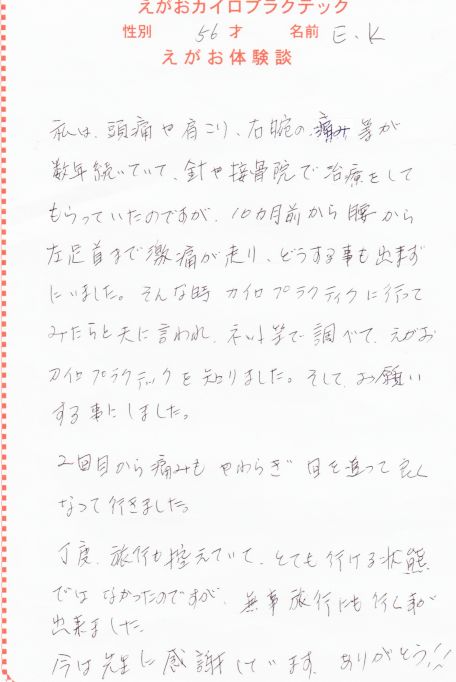 えがおカイロプラクティック
性別 56才 名前 E.K
えがお体験談
私は、頭痛や肩こり、右腕の痛み等が
数年続いていて、針や接骨院で治療をして
もらっていたのですが、10カ月前から腰から
左足首まで激痛が走り、どうする事も出来ずに
にいました。そんな時カイロプラクティクに行って
みたらと夫に言われ、ネット等で調べて、えがお
カイロプラクティックを知りました。そして、お願い
する事にしました。
2回目から痛みもやわらぎ日を追って良く
なって行きました。
丁度、旅行も控えていて、とても行ける状態
ではなかったのですが、無事旅行にも行く事が
出来ました。
今は先生に感謝しています。ありがとう!!